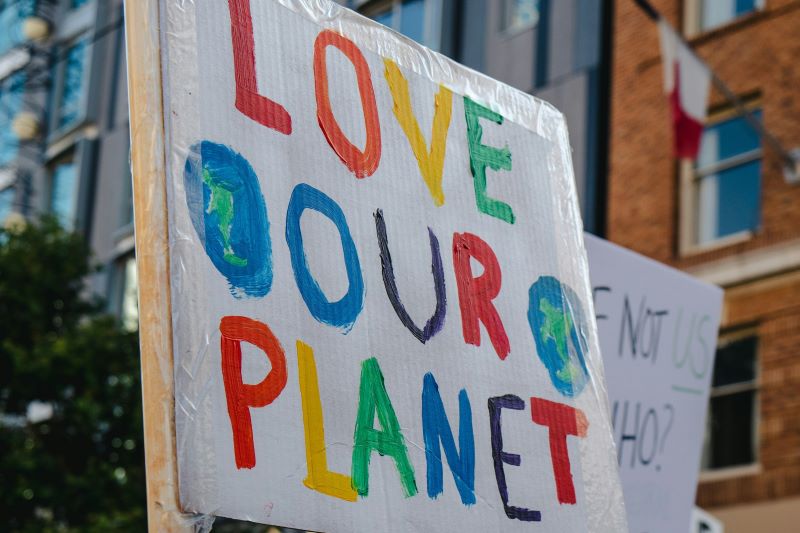 LOVE
OUR
PLANET
F NOT US
WHO?